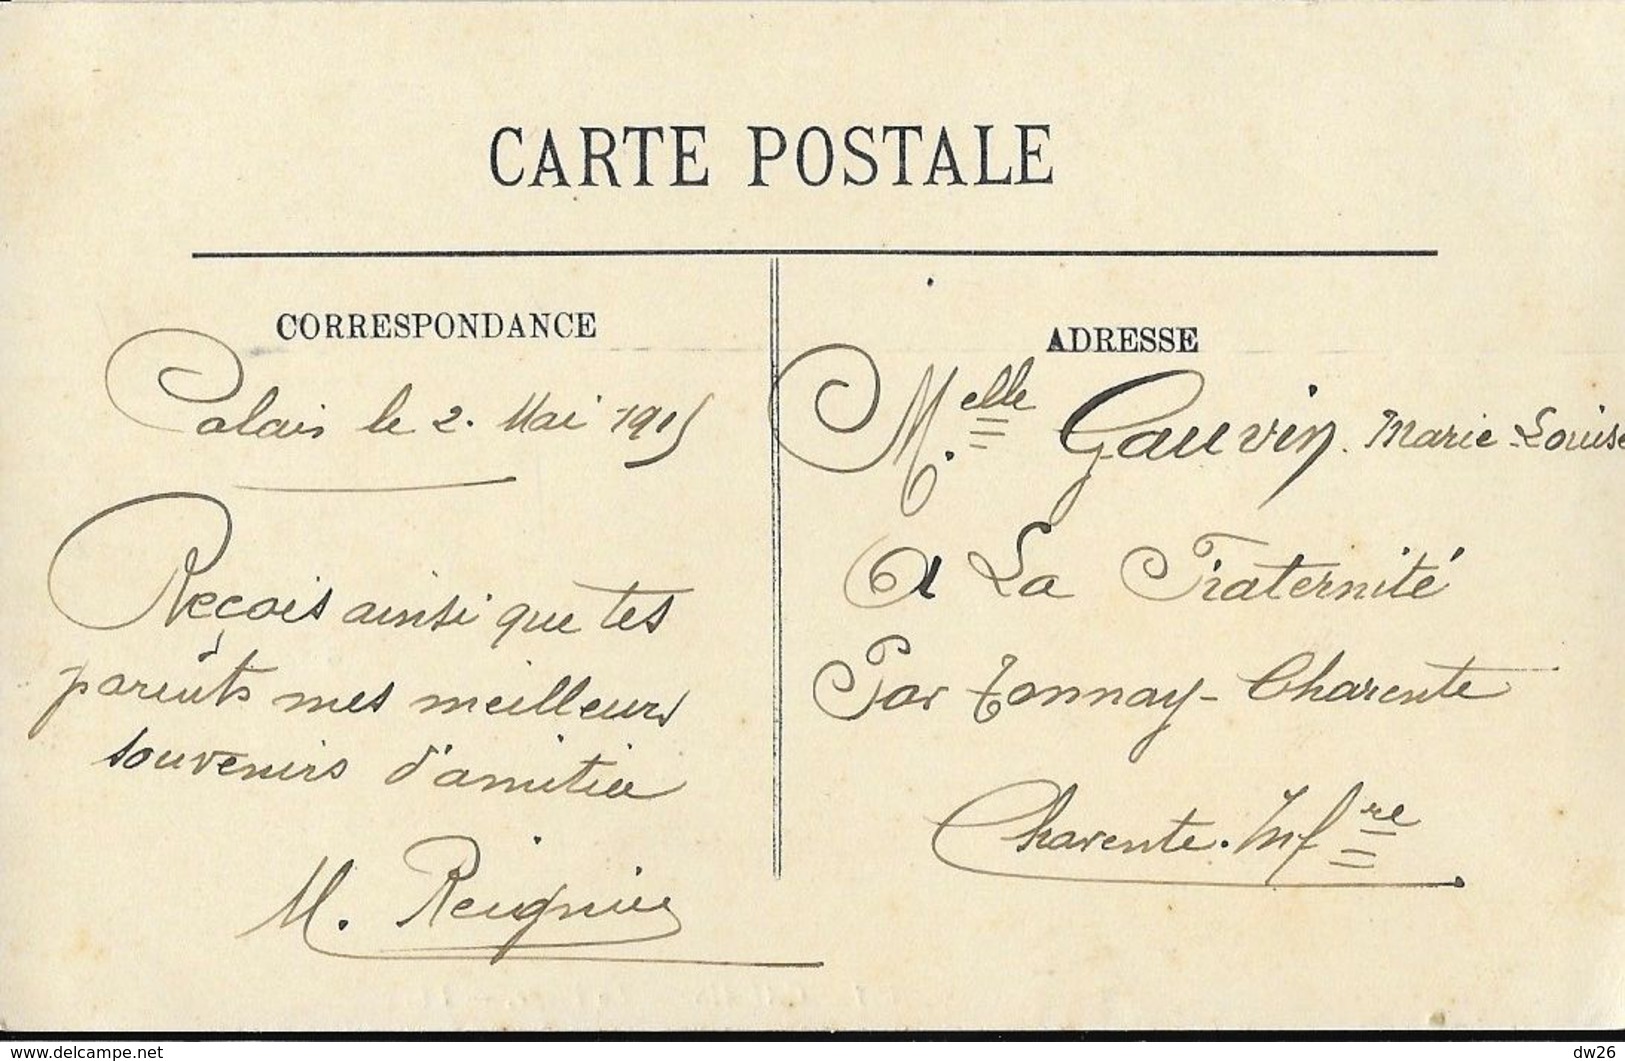 CARTE POSTALE
CORRESPONDANCE
Calais le 2. Mai 1915
Reçois ainsi que tes
parents mes meilleurs
souvenirs d'amitiée
M. Reignier
ADRESSE
Melle Gauvin. Marie-Louise
A La Fraternité
Par Tonnay-Charente
Charente. Infre
delcampe.net
dw26